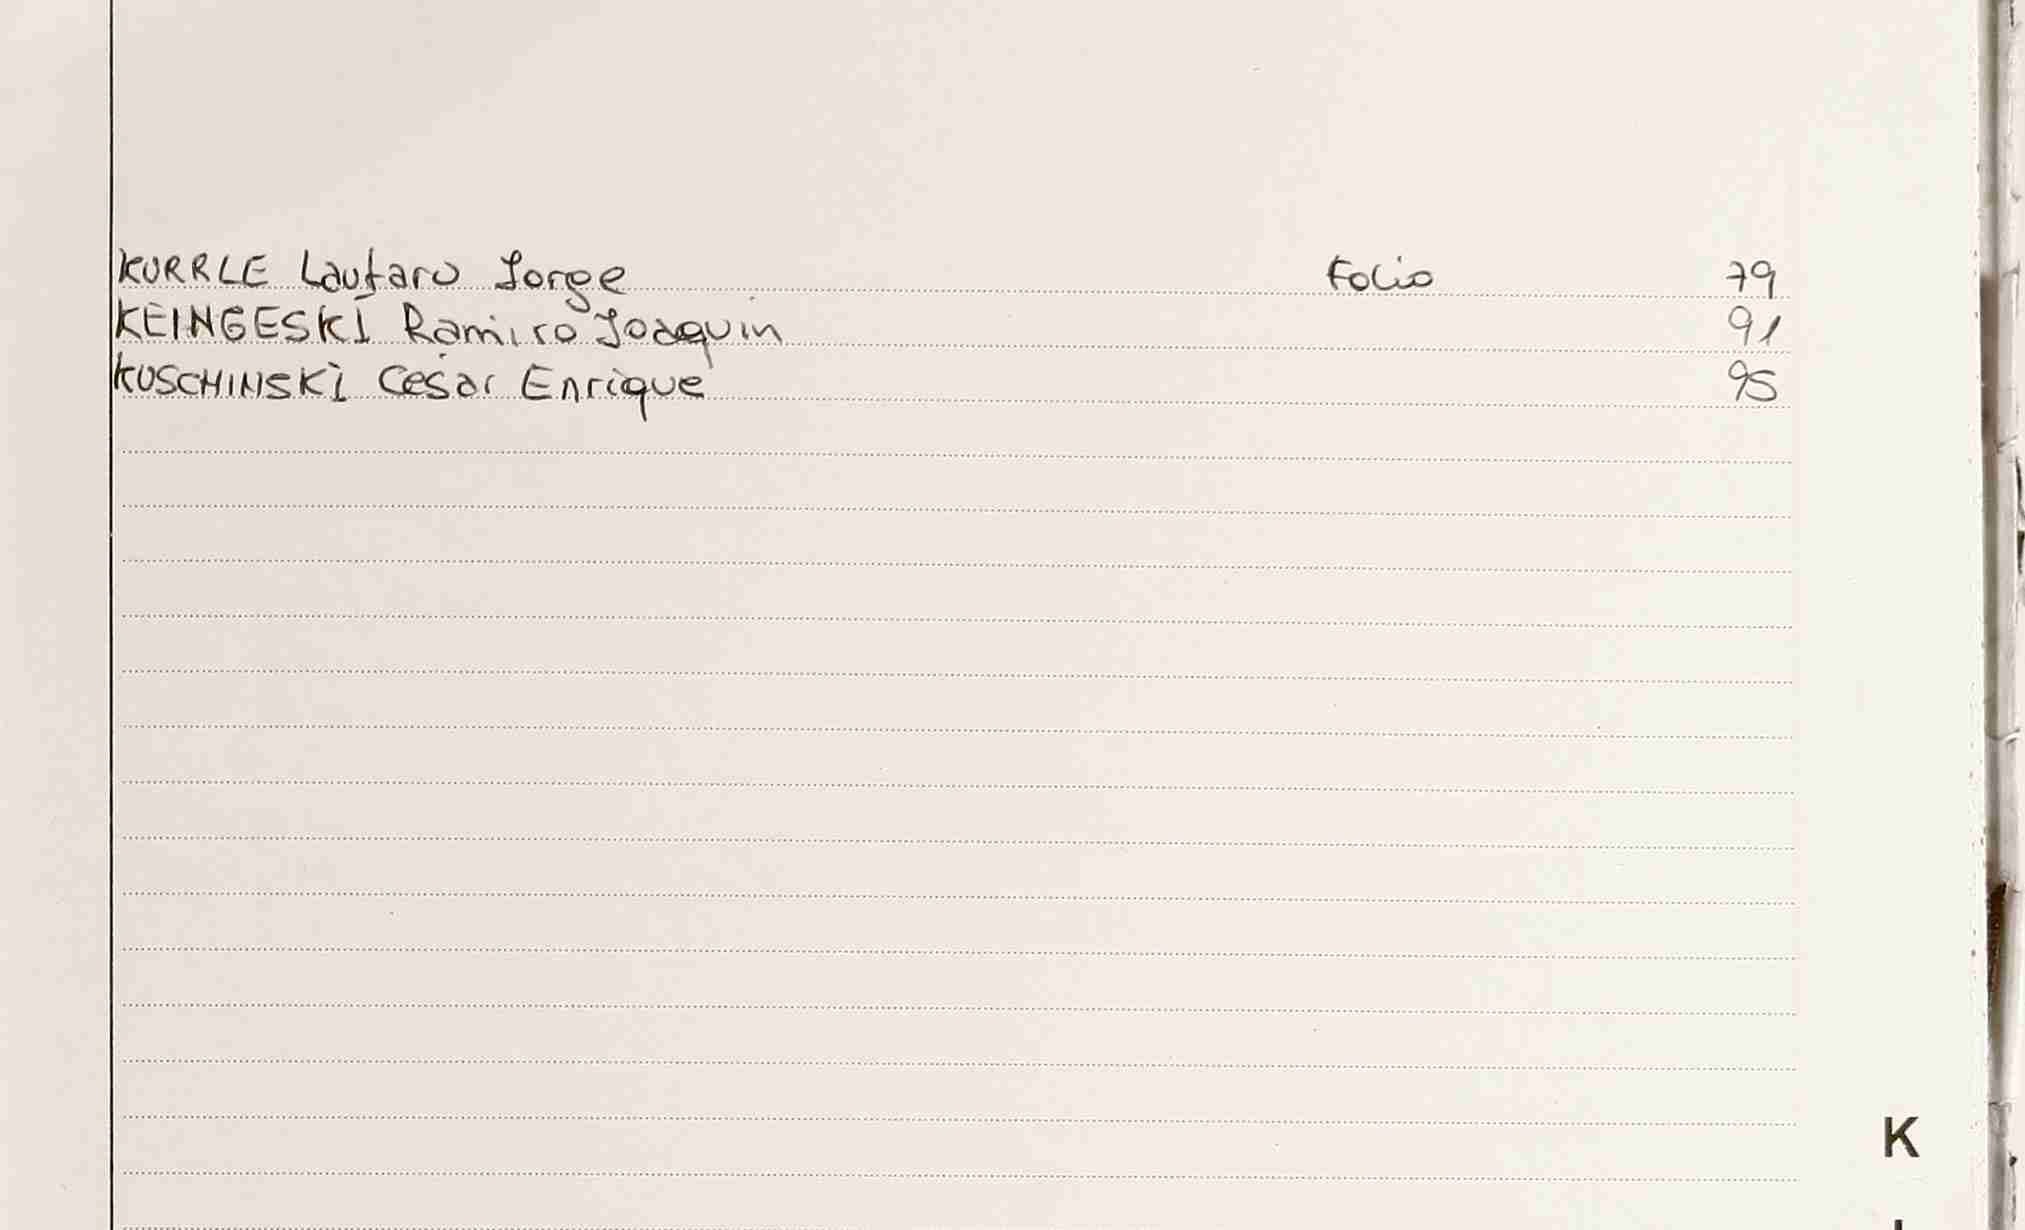 KURRLE Lautaro Jorge Folio 79
KEINGESKI Ramiro Joaquin 91
KUSCHINSKI Cesar Enrique 95
K